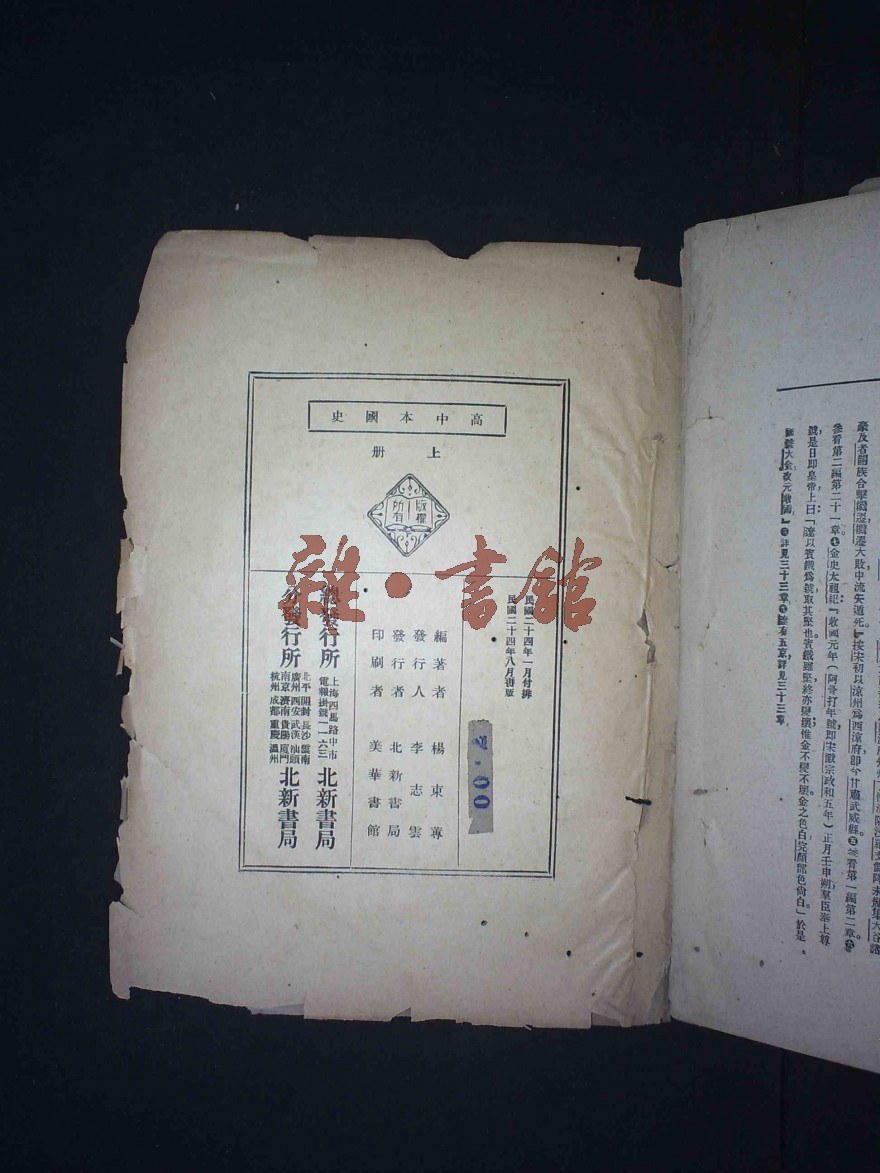 高中本國史
上册
版權
所有
民國二十四年一月付排
民國二十四年八月再版
2.00
編著者 楊東蓴
發行人 李志雲
發行者 北新書局
印刷者 美華書館
總發行所 上海四馬路中市 電報掛號一一六三 北新書局
分發行所 北平開封長沙雲南 廣州西安武漢汕頭 南京濟南貴陽廈門 杭州成都重慶溫州 北新書局
雜·書館
豪及者關族合擊繼遷繼遷大敗中流矢遁死。』按宋初以涼州爲西涼府即今甘肅武威縣。㊄參看第一編第二章。㊅
參看第二編第二十一章。㊆金史太祖紀：『收國元年（阿骨打年號即宋徽宗政和五年）正月壬申朔羣臣奉上尊
號是日即皇帝上曰：「遼以賓鐵爲號取其堅也賓鐵雖堅終亦變壞惟金不變不壞金之色白完顏部色尙白」於是
國號大金改元收國。』㊇詳見三十三章㊈遼有五京詳見三十三章